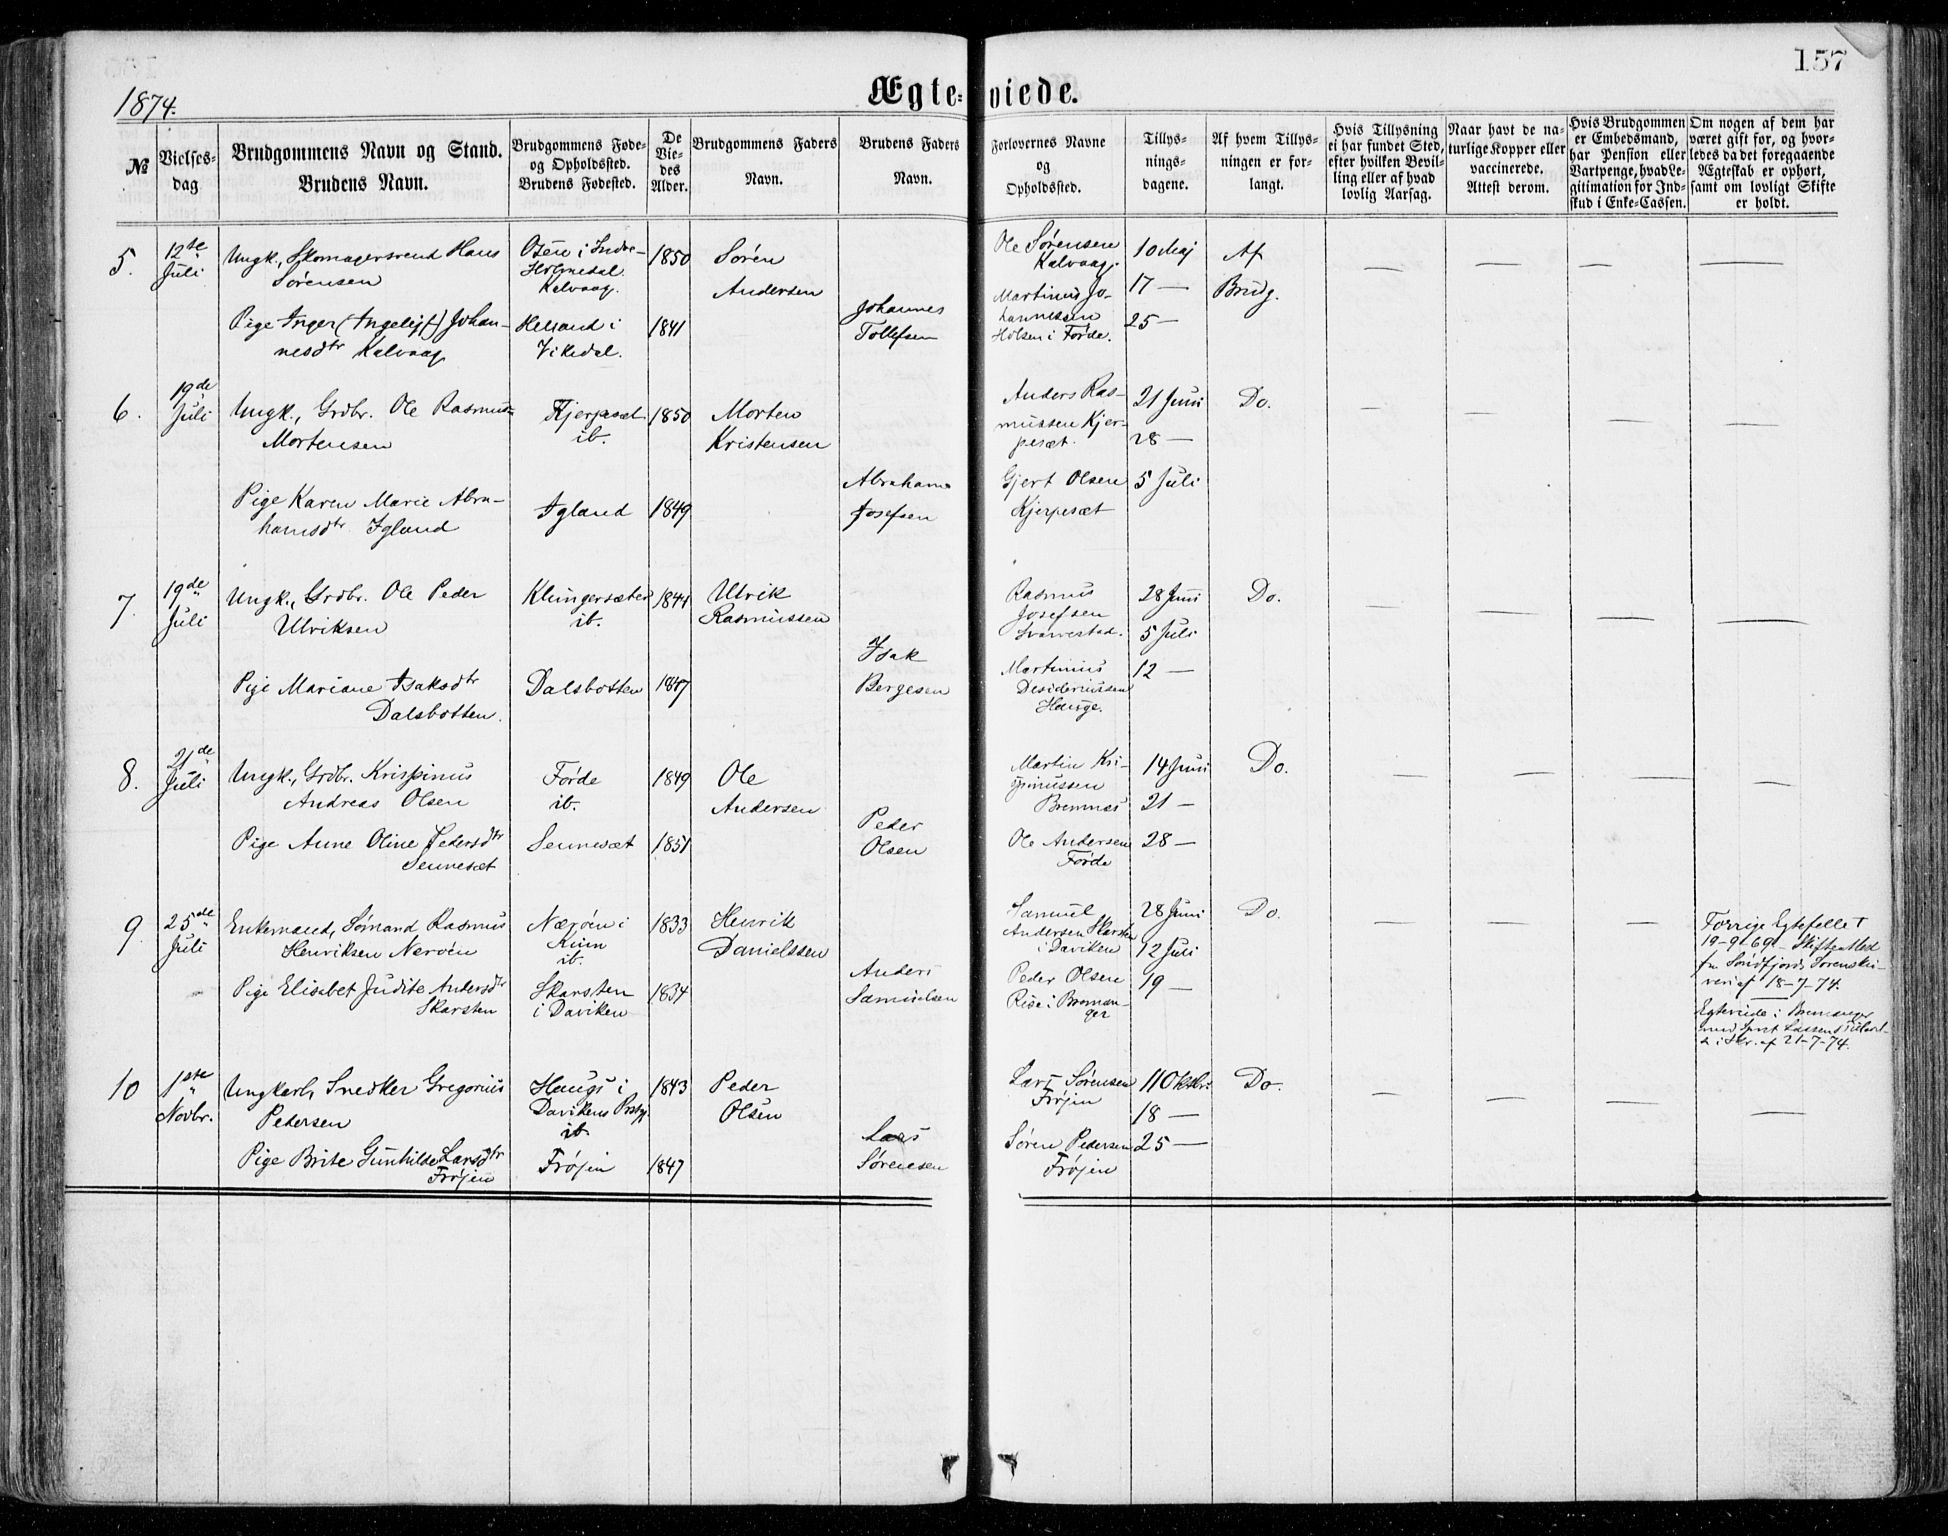 157
1874.
Ægte-viede.
№
Vielses-
dag
Brudgommens Navn og Stand.
Brudens Navn.
Brudgommens Føde-
og Opholdssted.
Brudens Fødested.
De
Vie-
des
Alder.
Brudgommens Faders
Navn.
Brudens Faders
Navn.
Forlovernes Navne
og
Opholdssted.
Tillys-
nings-
dagene.
Af hvem Tillys-
ningen er for-
langt.
Hvis Tillysning
ei har fundet Sted,
efter hvilken Bevil-
ling eller af hvad
lovlig Aarsag.
Naar havt de na-
turlige Kopper eller
vaccinerede.
Attest derom.
Hvis Brudgommen
er Embedsmand,
har Pension eller
Vartpenge, hvad Le-
gitimation for Ind-
skud i Enke-Cassen.
Om nogen af dem har
været gift før, og hvor-
ledes da det foregaaende
Ægteskab er ophørt,
samt om lovligt Skifte
er holdt.
5.
12te
Juli
Ungk., Skomagersvend Hans
Sørensen
Osen i Indre-
Holmedal
Kalvaag.
1850
Søren
Andersen
Pige Inger (Ingelej) Johan-
nesdtr Kalvaag
i
Vikedal.
1841
Johannes
Tollefsen
Ole Sørensen
Kalvaag.
Martinus Jo-
hannessen
Holsen i Førde.
10 Maj
17 —
25 —
Af
Brudg.
— — — —
6.
19de
Juli
Ungk., Grdbr. Ole Rasmus
Mortensen
Kjerpesæt
ib.
1850
Morten
Kristensen
Pige Karen Marie Abra-
hamsdtr. Igland
Igland
1849
Abraham
Josefsen
Anders Ras-
mussen Kjer-
pesæt.
Gjert Olsen
Kjerpesæt
21 Juni
28 —
5 Juli
Do.
— — — —
7.
19de
Juli
Ungk., Grdbr. Ole Peder
Ulriksen
Klungersæter
ib.
1844
Ulrik
Rasmussen
Pige Mariane Isaksdtr
Dalsbotten.
Dalsbotten
1847
Isak
Bergesen
Rasmus
Josefsen
Martinius
Desideriussen
Hauge.
28 Juni
5 Juli
12 —
Do.
— — — —
8.
21de
Juli
Ungk., Grdbr. Krispinus
Andreas Olsen
Førde
ib.
1849
Ole
Andersen
Pige Anne Oline Pedersdtr
Sennesæt
Sennesæt
1851
Peder
Olsen
Martin Kri-
spinussen
Bremnes
Ole Andersen
Førde
14 Juni
21 —
28 —
Do.
— — — —
9.
25de
Juli
Enkemand, Sømand Rasmus
Henriksen Nærøen
Nærøen i
Kinn
ib.
1833
Henrik
Danielssen
Pige Elisabet Judite Andersdtr
Skarsten
Skarsten
i Daviken
1834
Anders
Samuelsen
Samuel
Andersen Skarsten
i Daviken
Peder Olsen
Rise i Breman-
ger
28 Juni
12 Juli
19 —
Do.
— — —
Forrige Egtefelle †
19-9-69 - Skifteattest
fra Søndfjords Sorenskri-
veri af 18-7-74.
Egteviede i Bremanger
af 21-7-74.
10
1ste
Novbr.
Ungkarl, Snedker Gregorius
Pedersen
Haugs i
Davikens Prstgj.
ib.
1843
Peder
Olsen
Pige Brite Gunhilde Larsdtr
Frøjen
Frøjen
1847
Lars
Sørensen
Lars Sørensen
Frøjen
Søren Pedersen
Frøjen
11 Oktbr.
18 —
25 —
Do.
— — — —